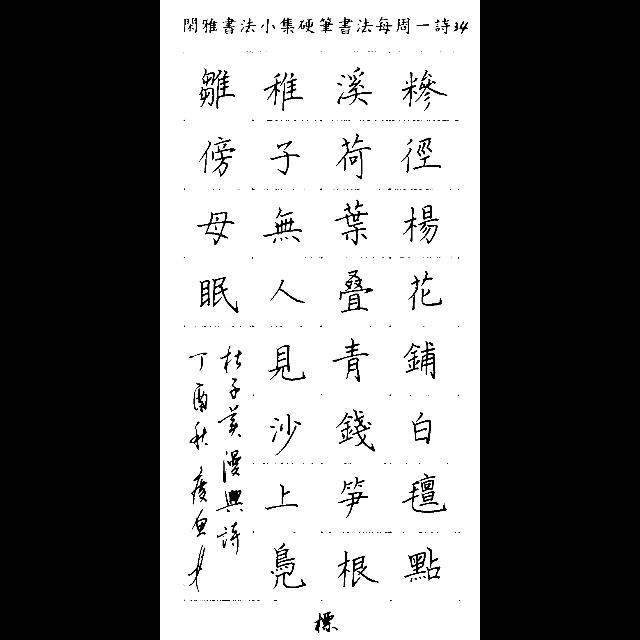 閑雅書法小集硬筆書法每周一詩34
糝徑楊花鋪白氊點
溪荷葉叠青錢笋根
稚子無人見沙上鳧
雛傍母眠
杜子美漫興詩
丁酉秋
標